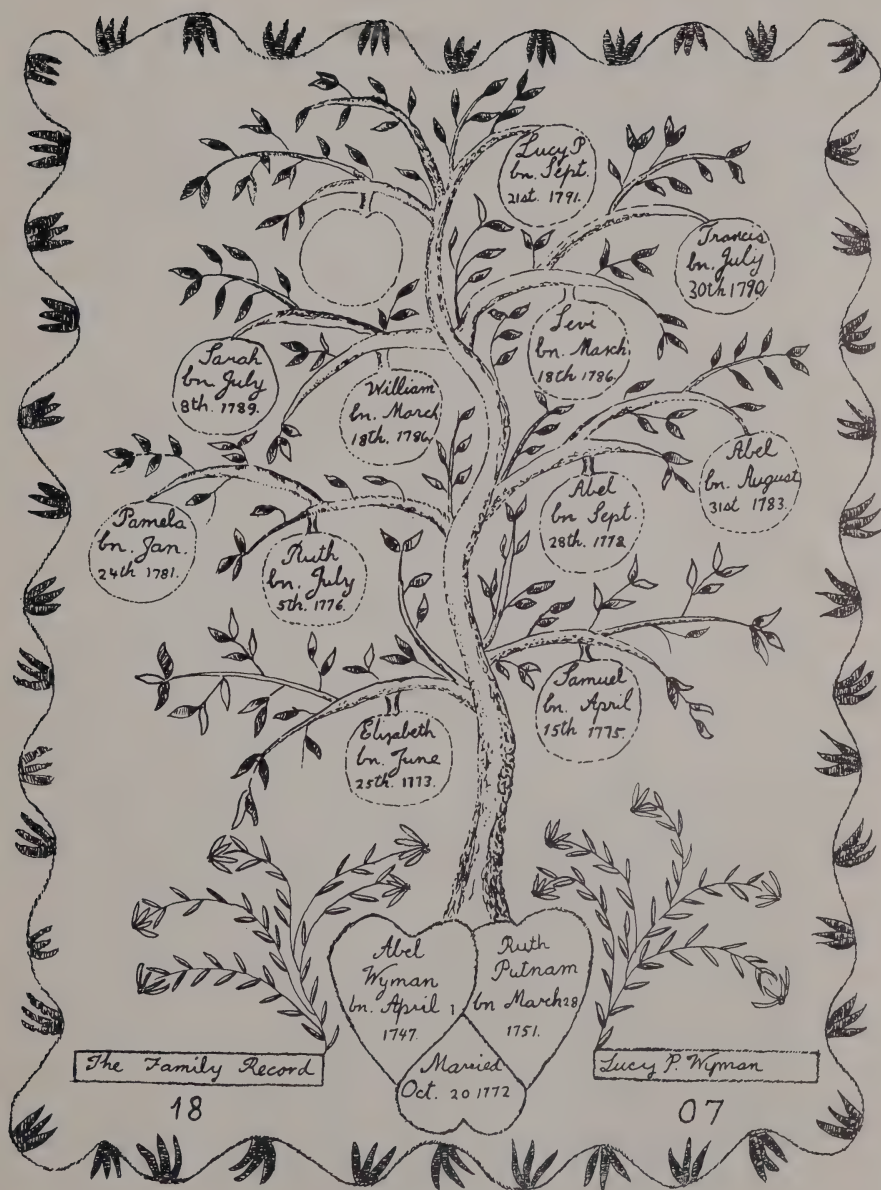 Lucy P
bn. Sept.
21st. 1791.
Francis
bn. July
30th 1790
Levi
bn. March
18th 1786.
Sarah
bn. July
8th. 1789.
William
bn. March
18th. 1786.
Abel
bn. August
31st 1783.
Abel
bn Sept.
28th. 1778
Pamela
bn. Jan.
24th 1781.
Ruth
bn. July
5th. 1776.
Samuel
bn. April
15th 1775.
Elizabeth
bn. June
25th. 1773.
Abel
Wyman
bn. April 1
1747.
Ruth
Putnam
bn March 28
1751.
Maried
Oct. 20 1772
The Family Record
Lucy P. Wyman
18 07